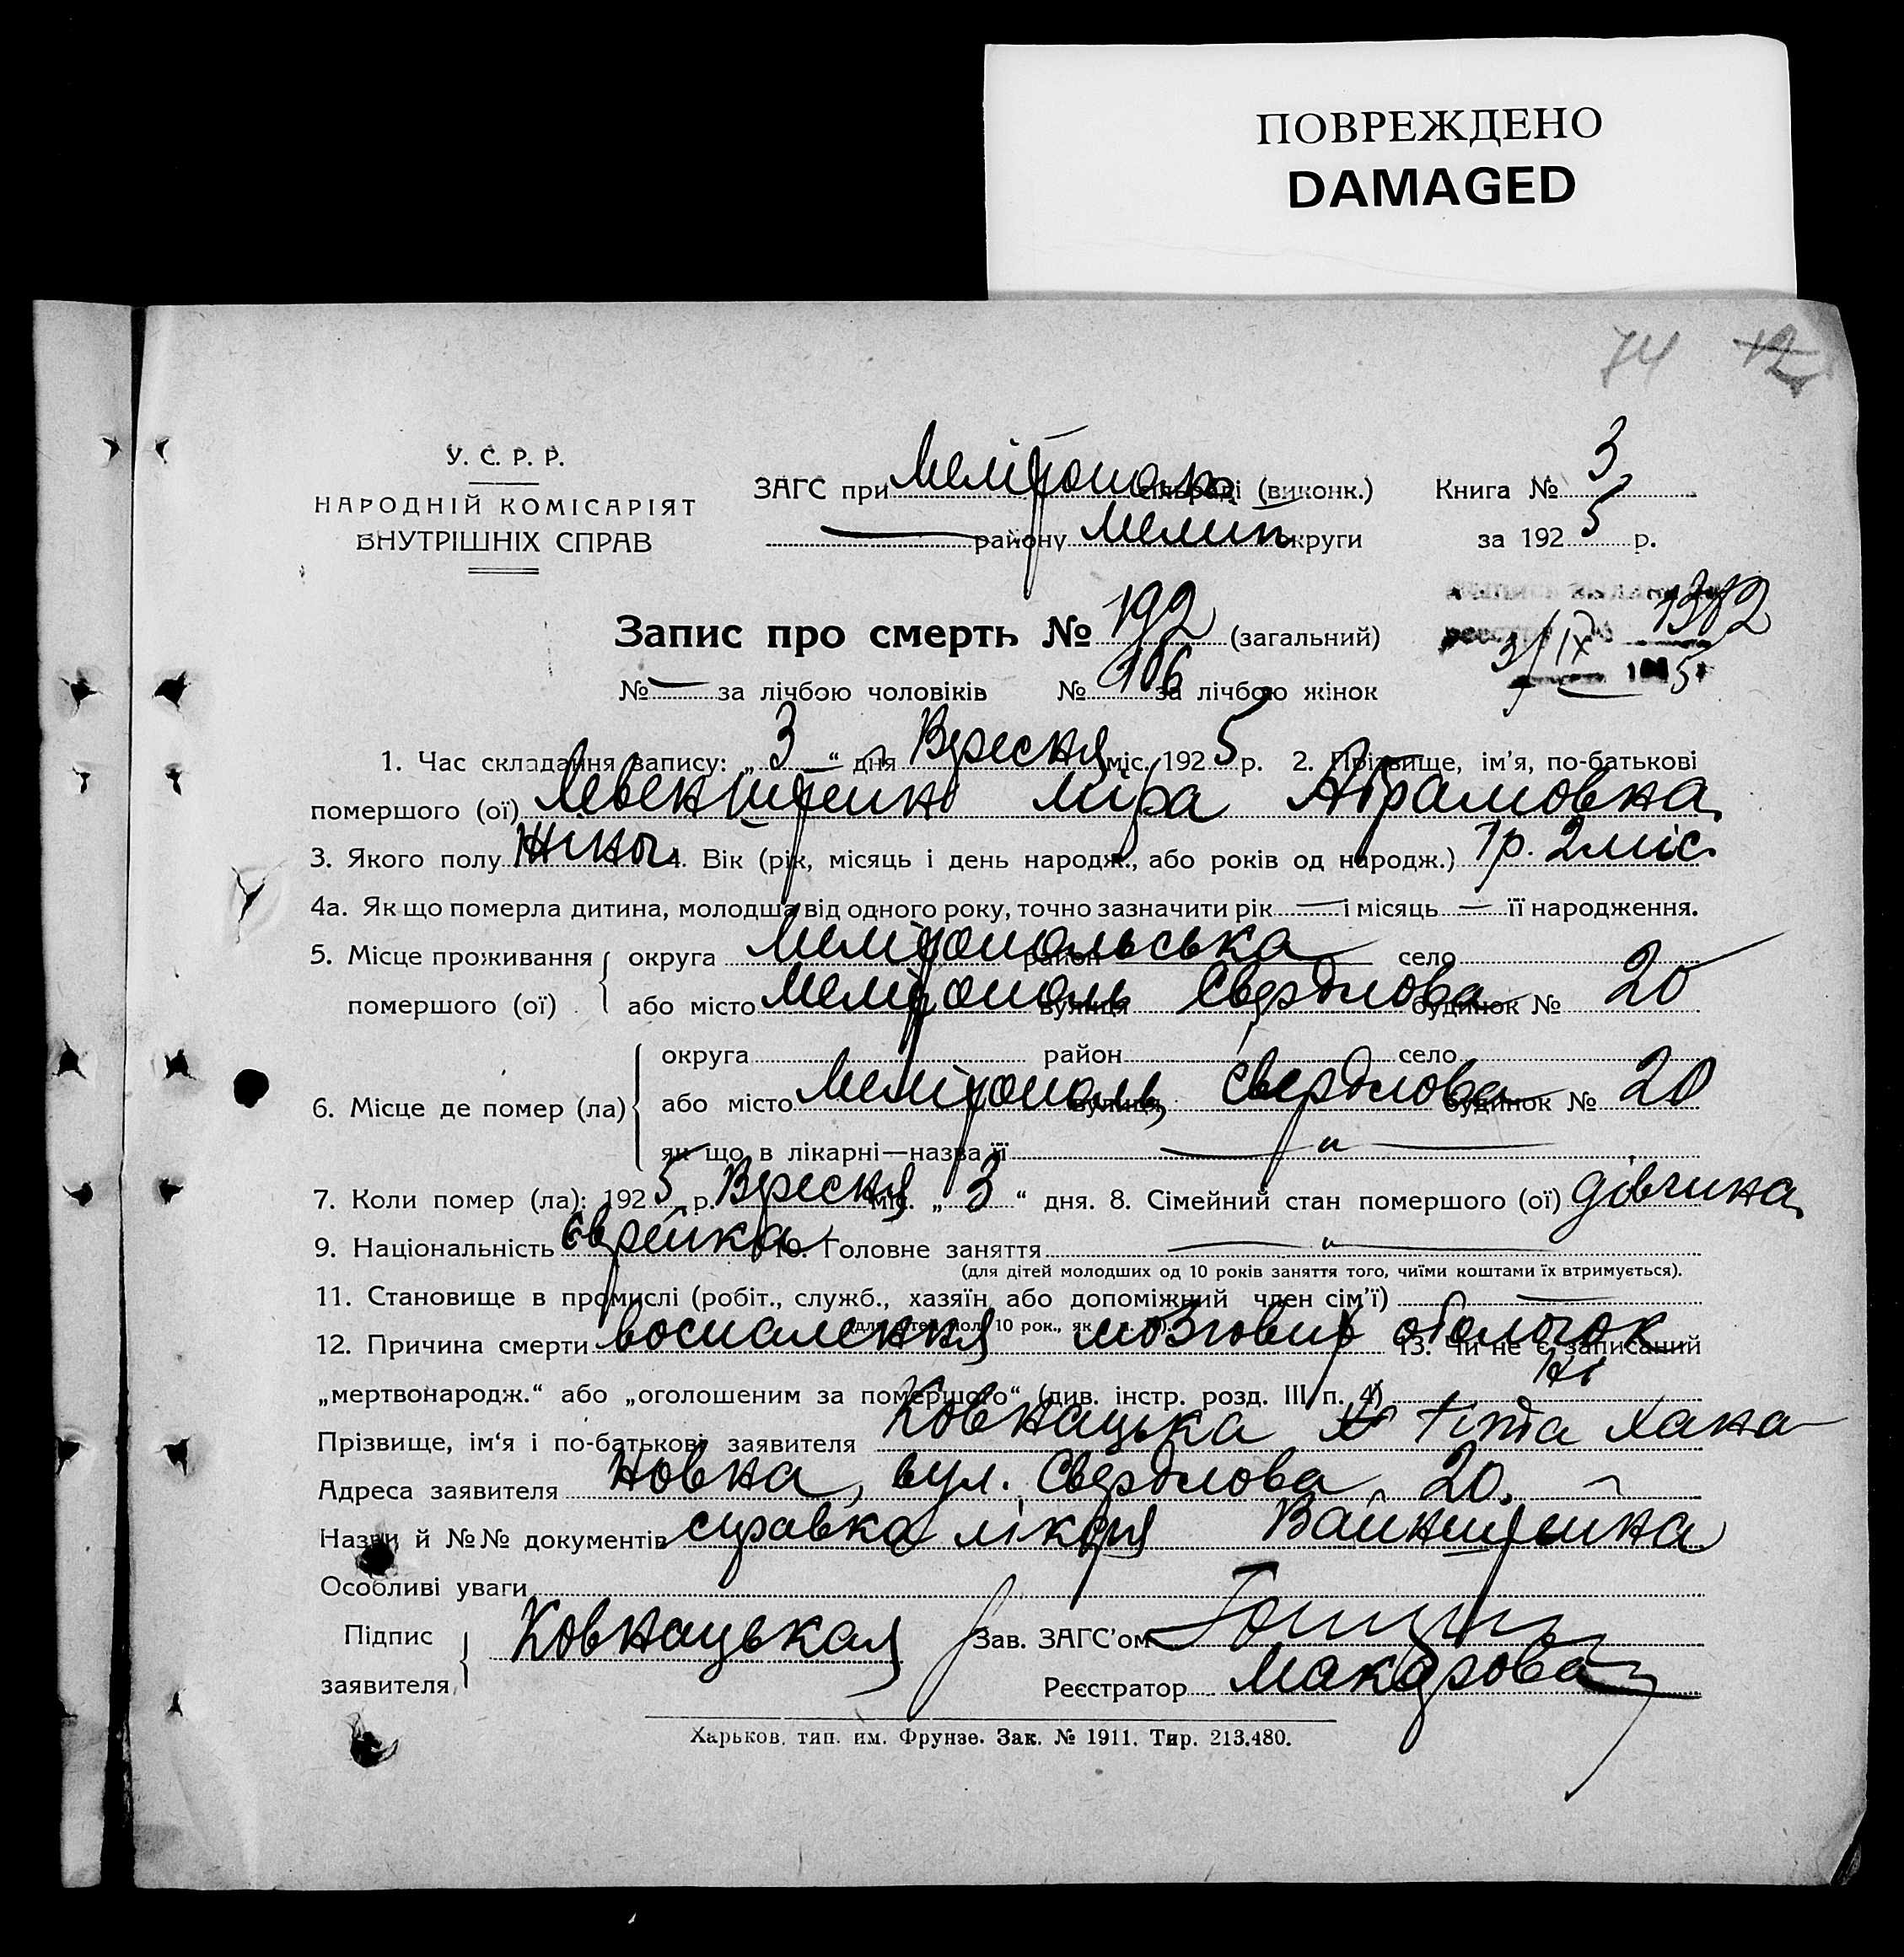 ПОВРЕЖДЕНО
DAMAGED
74 12
У. С. Р. Р.
НАРОДНІЙ КОМІСАРІЯТ
ВНУТРІШНІХ СПРАВ
ЗАГС при Мелітополь сільраді (виконк.) Книга № 3
— району Мелит округи за 1925 р.
Запис про смерть № 192 (загальний) 1382
№ — за лічбою чоловіків № 106 за лічбою жінок 3/IX 1925
1. Час складання запису: „3“ дня Вересня міс. 1925 р. 2. Прізвище, ім'я, по-батькові
помершого (ої) Левенштейн Міра Абрамовна
3. Якого полу Жіноч. 4. Вік (рік, місяць і день народж., або років од народж.) 1 р. 2 міс.
4а. Як що померла дитина, молодша від одного року, точно зазначити рік — і місяць — її народження.
5. Місце проживання помершого (ої) { округа Мелітопольська район — село
або місто Мелітополь вулиця Свердлова будинок № 20
6. Місце де помер (ла) { округа район село
або місто Мелітополь, вулиця Свердлова будинок № 20
як що в лікарні—назва її — „ —
7. Коли помер (ла): 1925 р. Вересня міс. „3“ дня. 8. Сімейний стан помершого (ої) дівчина
9. Національність єврейка 10. Головне заняття — „ —
(для дітей молодших од 10 років заняття того, чиїми коштами їх втримується).
11. Становище в промислі (робіт., служб., хазяїн або допоміжний член сім'ї) —
12. Причина смерти воспалення мозгових оболочок 13. Чи не є записаний
„мертвонародж.“ або „оголошеним за помершого“ (див. інстр. розд. III п. 4) Ні
Прізвище, ім'я і по-батькові заявителя Ковнацька Гітта Хана-
Адреса заявителя новна, вул. Свердлова, 20.
Назви й №№ документів справка лікаря Вайнштейна
Особливі уваги
Підпис заявителя { Ковнацькая Зав. ЗАГС'ом
Реєстратор Макарова
Харьков, тип. им. Фрунзе. Зак. № 1911. Тир. 213.480.